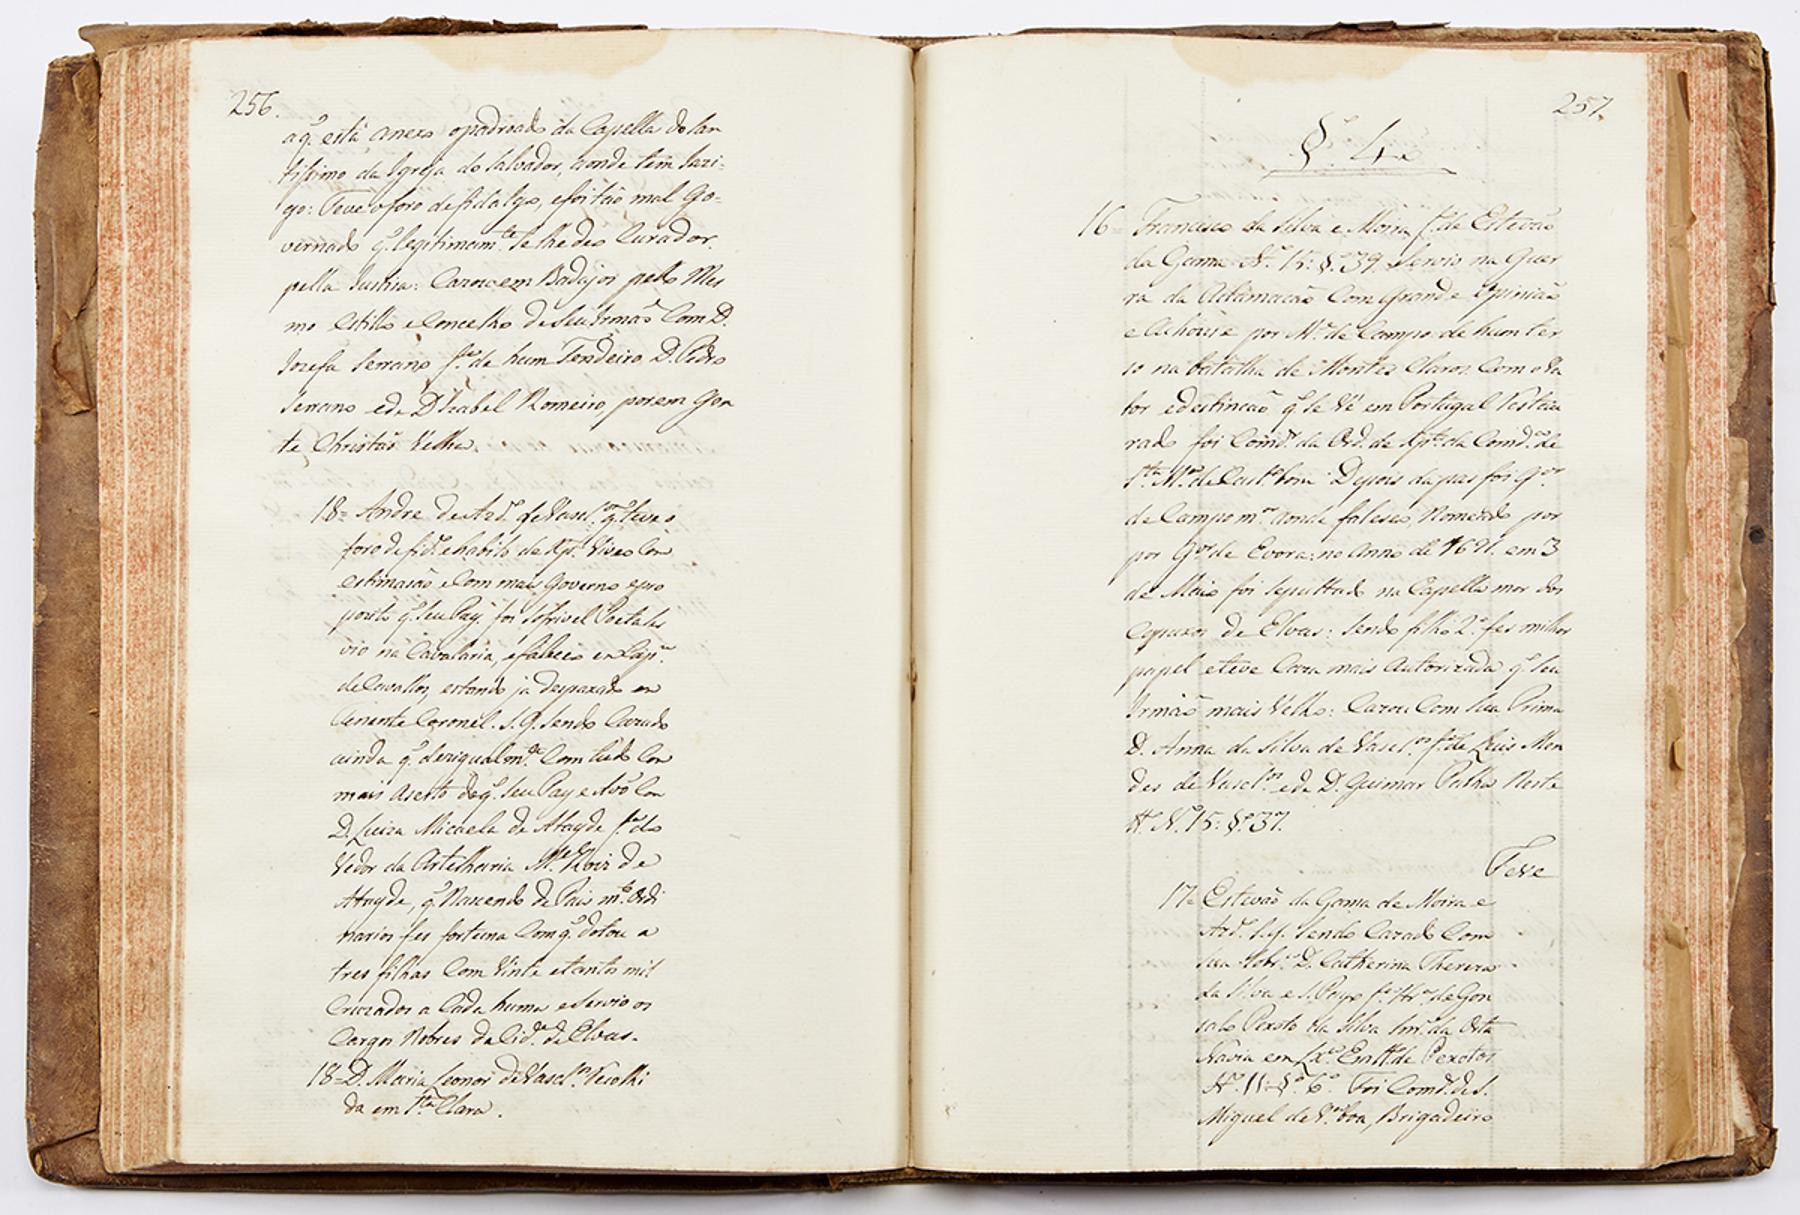 256.
a q̃. està anexo opadroado da Capella do San
tissimo da Igreja do Salvador, aonde tem Jazi-
go: Teve o foro de fidalgo, e foi tão mal Go-
vernado q̃. legitimam.te se lhe deo Curador
pella Justiça: Cazou em Badajos pello Mes
mo estillo e Concelho de seu Irmão Com D.
Jozefa Serrano f.a de hum Tendeiro D. Pedro
Serrano e de D. Izabel Romeiro, porem Gen
te Christaã Velha.
18= Andre de Azd.o de Vascl.os q̃. teve o
foro de fid.o e habito de Xp.to Viveo Com
estimação e Com mais Governo e pro
posito q̃. seu Pay. foi sofrivel Poeta ser
vio na Cavalaria, e faleceo en Cap.m
de Cavallos, estando ja despaxado en
Tenente Coronel. S.G. sendo Cazado
ainda q̃. desigualm.te Com tudo Com
mais aserto do q̃. seu Pay e Avô Com
D. Luiza Micaela de Atayde f.a do
Vedor da Artelharia M.el Roiz de
Atayde, q̃. Nascendo de Pais m.to Ordi
narios fes fortuna Com q̃. dotou a
tres filhas Com Vinte e tantos mil
Cruzados a Cada huma e servio os
Cargos Nobres da Cid.e de Elvas.
18= D. Maria Leonor de Vascl.os Recolhi
da em S.ta Clara.
257.
§.o 4.o
16= Francisco da Silva e Moura f.o de Estevão
da Gama N.o 15: §.o 39. servio na Guer
ra da Aclamacaõ Com Grande Opiniaõ
e Achouse por M.e de Campo de hum ter
so na batalha de Montes Claros Com o Va
lor e destincaõ q̃. se Vê em Portugal Restau
rado foi Comd.or da Ord. de Xp.to da Comd.a de
S.ta M.a de Cast.bom Depois da pas foi G.or
de Campo m.or aonde faleseo, Nomeado por
por G.or de Evora: no Anno de 1691. em 3
de Maio foi sepultado na Capella mor dos
Capuxos de Elvas: Sendo filho 2.o fes milhor
papel e teve Caza mais Autorizada q̃. seu
Irmaõ mais Velho: Cazou Com sua Prima
D. Anna da Silva de Vascl.os f.a de Luis Men
des de Vascl.os e de D. Guimar Palha Neste
tt.o N.o 15: §.o 37.
Teve
17= Estevaõ da Gama de Moura e
Azd.o S.g. sendo Cazado Com
sua Sobr.a D. Catherina Thereza
da Silva e S. Payo f.a Hr.a de Gon
salo Pexoto da Silva Snr. da Orta
Navia em Lx.a En tt.o de Pexotos
N.o 11= §.o 6.o Foi Comd.or de S.
Miguel de V.a boa, Brigadeiro